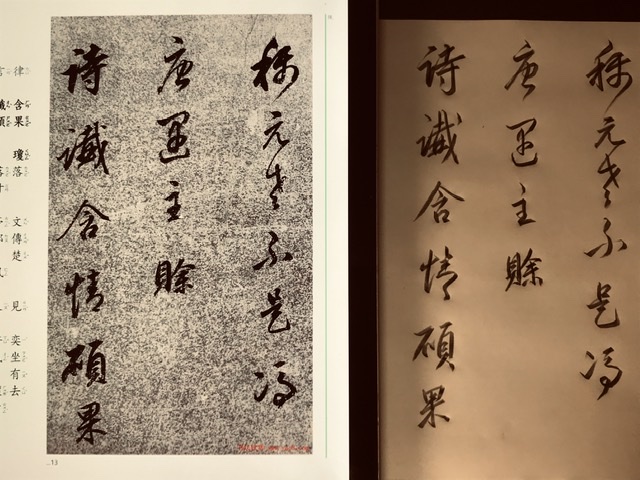 稱元老不是馮
唐運主賒
詩讖含情碩果
律
含果
瓊落
文傳楚
見
奕坐有去
13
稱元老不是馮
唐運主賒
詩讖含情碩果